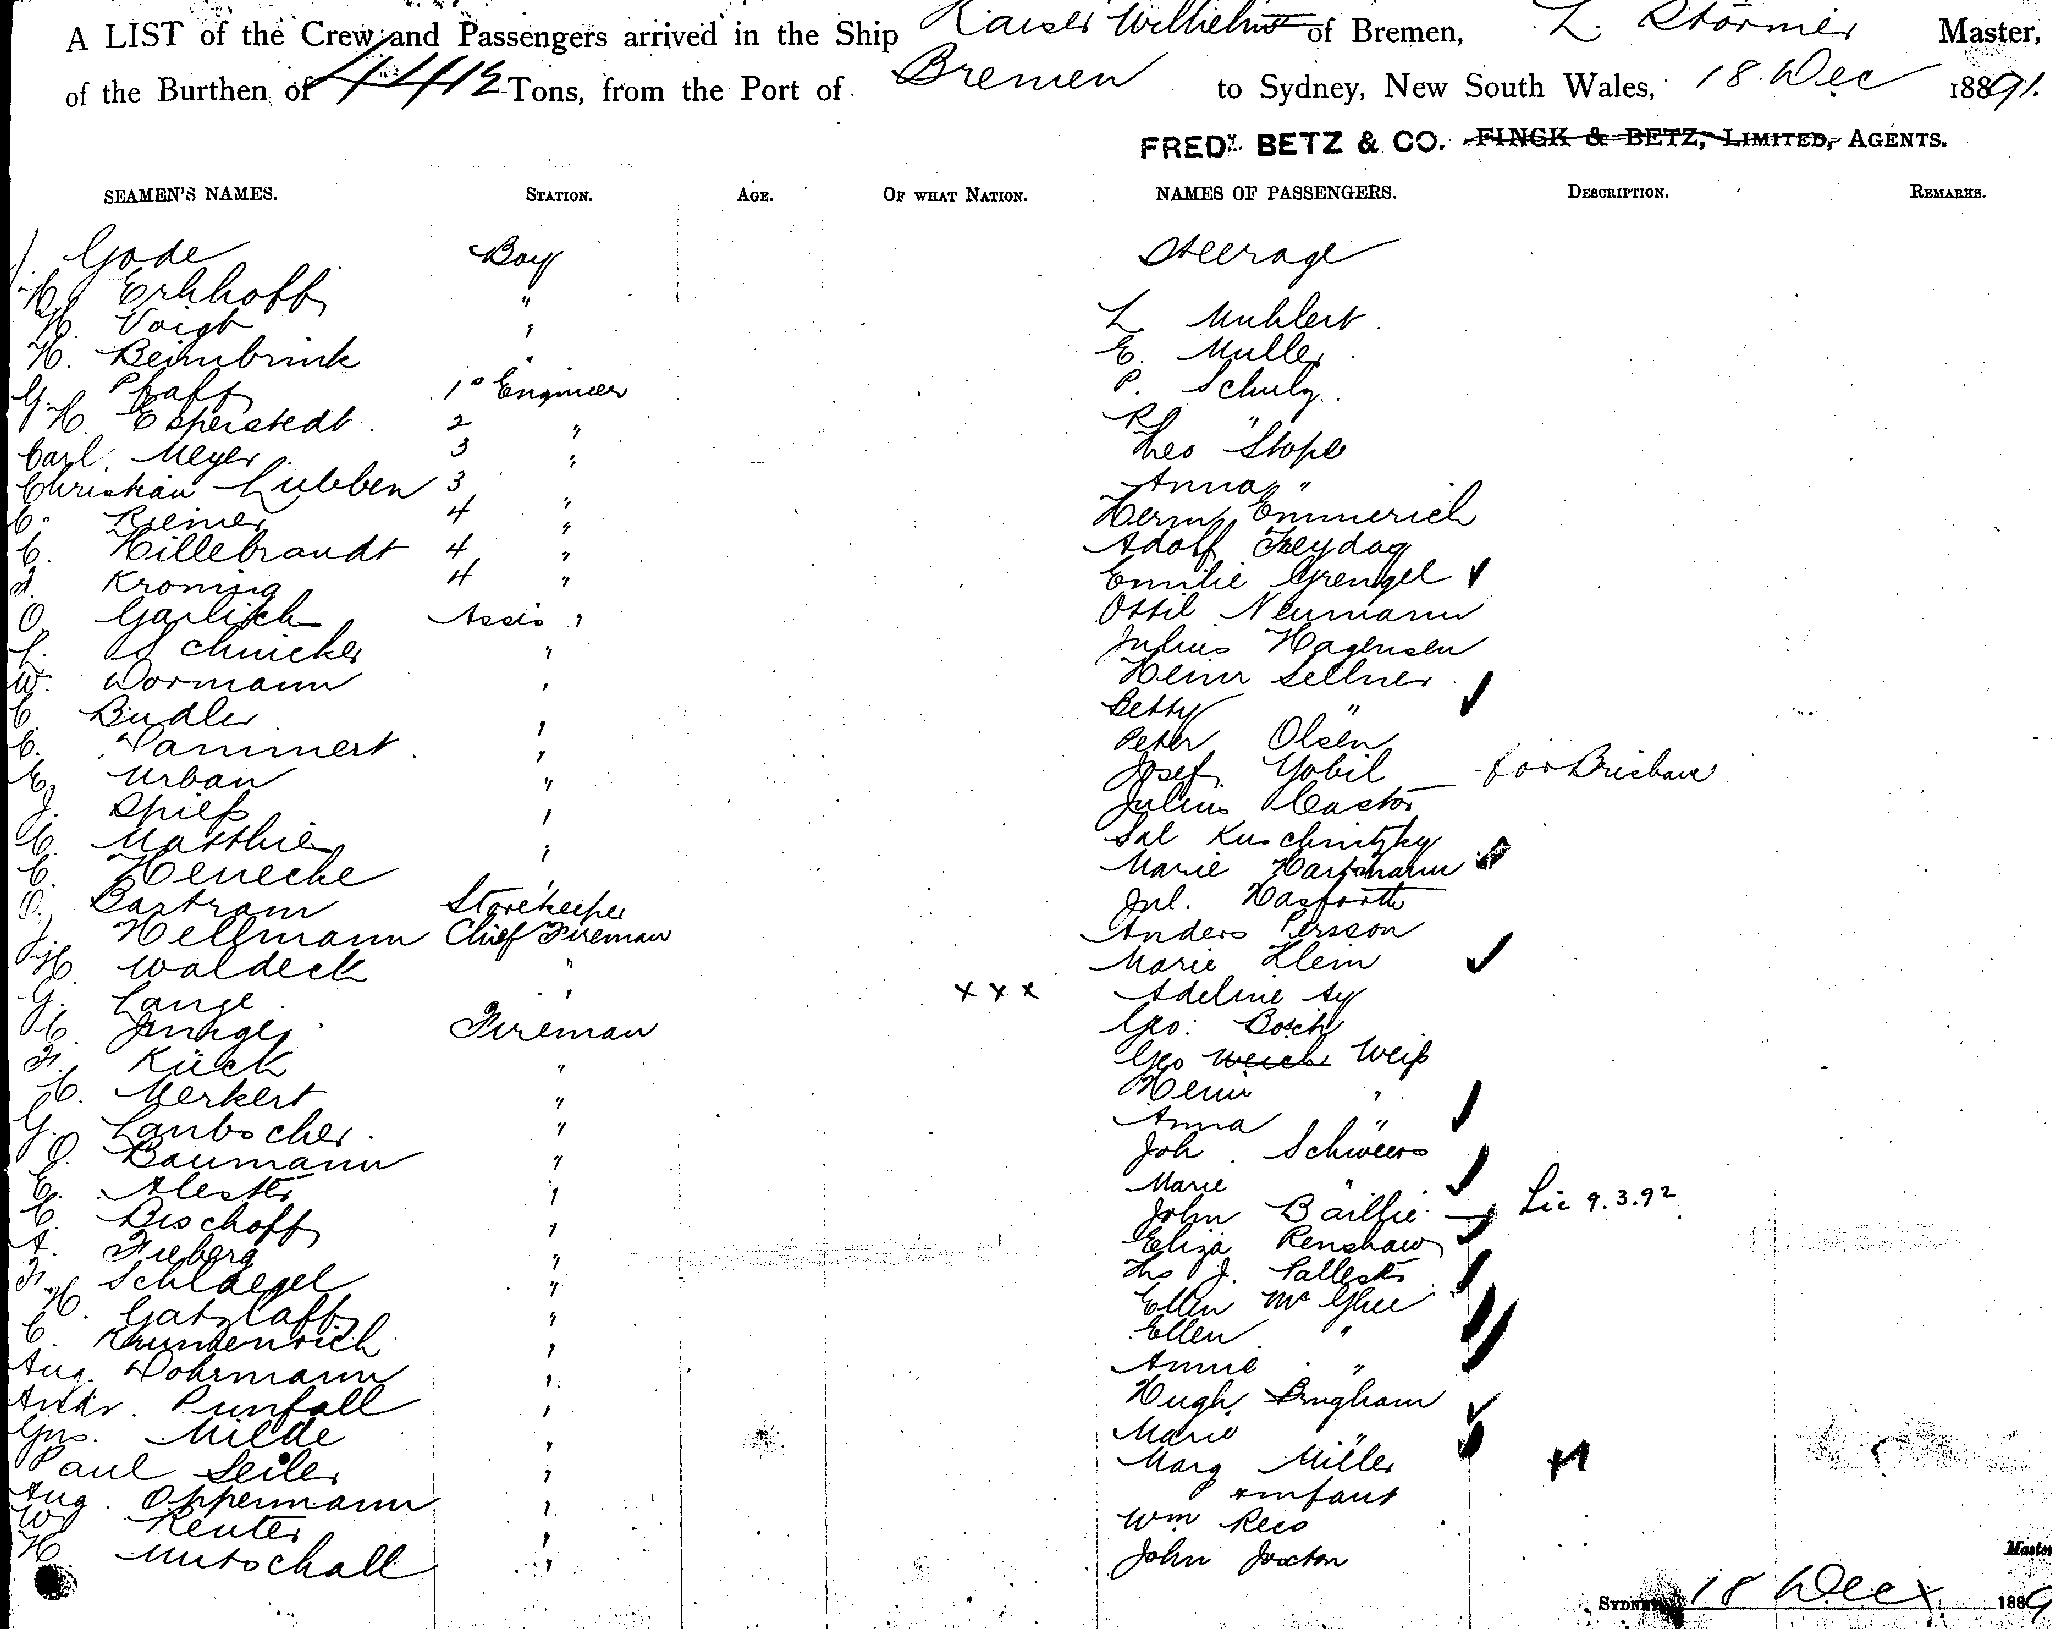 A LIST of the Crew and Passengers arrived in the Ship Kaiser Wilhelm II of Bremen, L. Störmer Master,
of the Burthen of Tons, from the Port of Bremen to Sydney, New South Wales, 18 Dec 1891.
FREDK. BETZ & CO. FINCK & BETZ, LIMITED, AGENTS.
SEAMEN'S NAMES. STATION. AGE. OF WHAT NATION. NAMES OF PASSENGERS. DESCRIPTION. REMARKS.
Gode Boy Steerage
Erkhoff "
H. Voigt " L Muhlert
H. Beimbrink " E. Muller
G. Pfaff 1° Engineer P. Schulz
H. Esperstedt 2 " R "
Carl Meyer 3 " Theo Stope
Christian Lubben 3 " Anna "
C. Riemer 4 " Herm Emmerich
C. Hillebrandt 4 " Adolf Freydag
Kroning 4 " Emilie Grengel
O Garlich Assis " Ottil Neumann
Schnicker " Julius Hagensen
W. Wormann " Heinr Sellner
C Budler " Betty "
C. Dammert " Peter Olsen
C. Urban " Josef Gobil for Brisbane
J. Spieß " Julius Castor
C. Matthies " Sal Kuschnitzky
C. Henecke " Marie Hartmann
O. Bartram Storekeeper Jul. Hasforth
J. Hellmann Chief Fireman Anders Persson
H. Waldeck " Marie Klein
G. Lange " x x x Adeline Ay
C. Junge Fireman Geo: Bosch
Fr. Kück " Geo Weich Weiß
C. Merkert " Heinr "
G. Laubscher " Anna "
O. Baumann " Joh. Schweers
C. Alester " Marie "
C. Bischoff " John Baillie Lic 9.3.92
A. Frieberg " Eliza Renshaw
Fr. Schlaegel " Ths J. Pallester
H. Gatzlaff " Ellen McGhee
C. " Ellen "
Aug. Dohrmann " Annie "
Andr. Punfall " Hugh Bingham
Gus. Milde " Marie "
Paul Seiler " Marg Miller
Aug. Oppermann " + infant
W Reuter " Wm Rees
H. Mutschall " John Joxton
Master
SYDNEY 18 Dec 1889